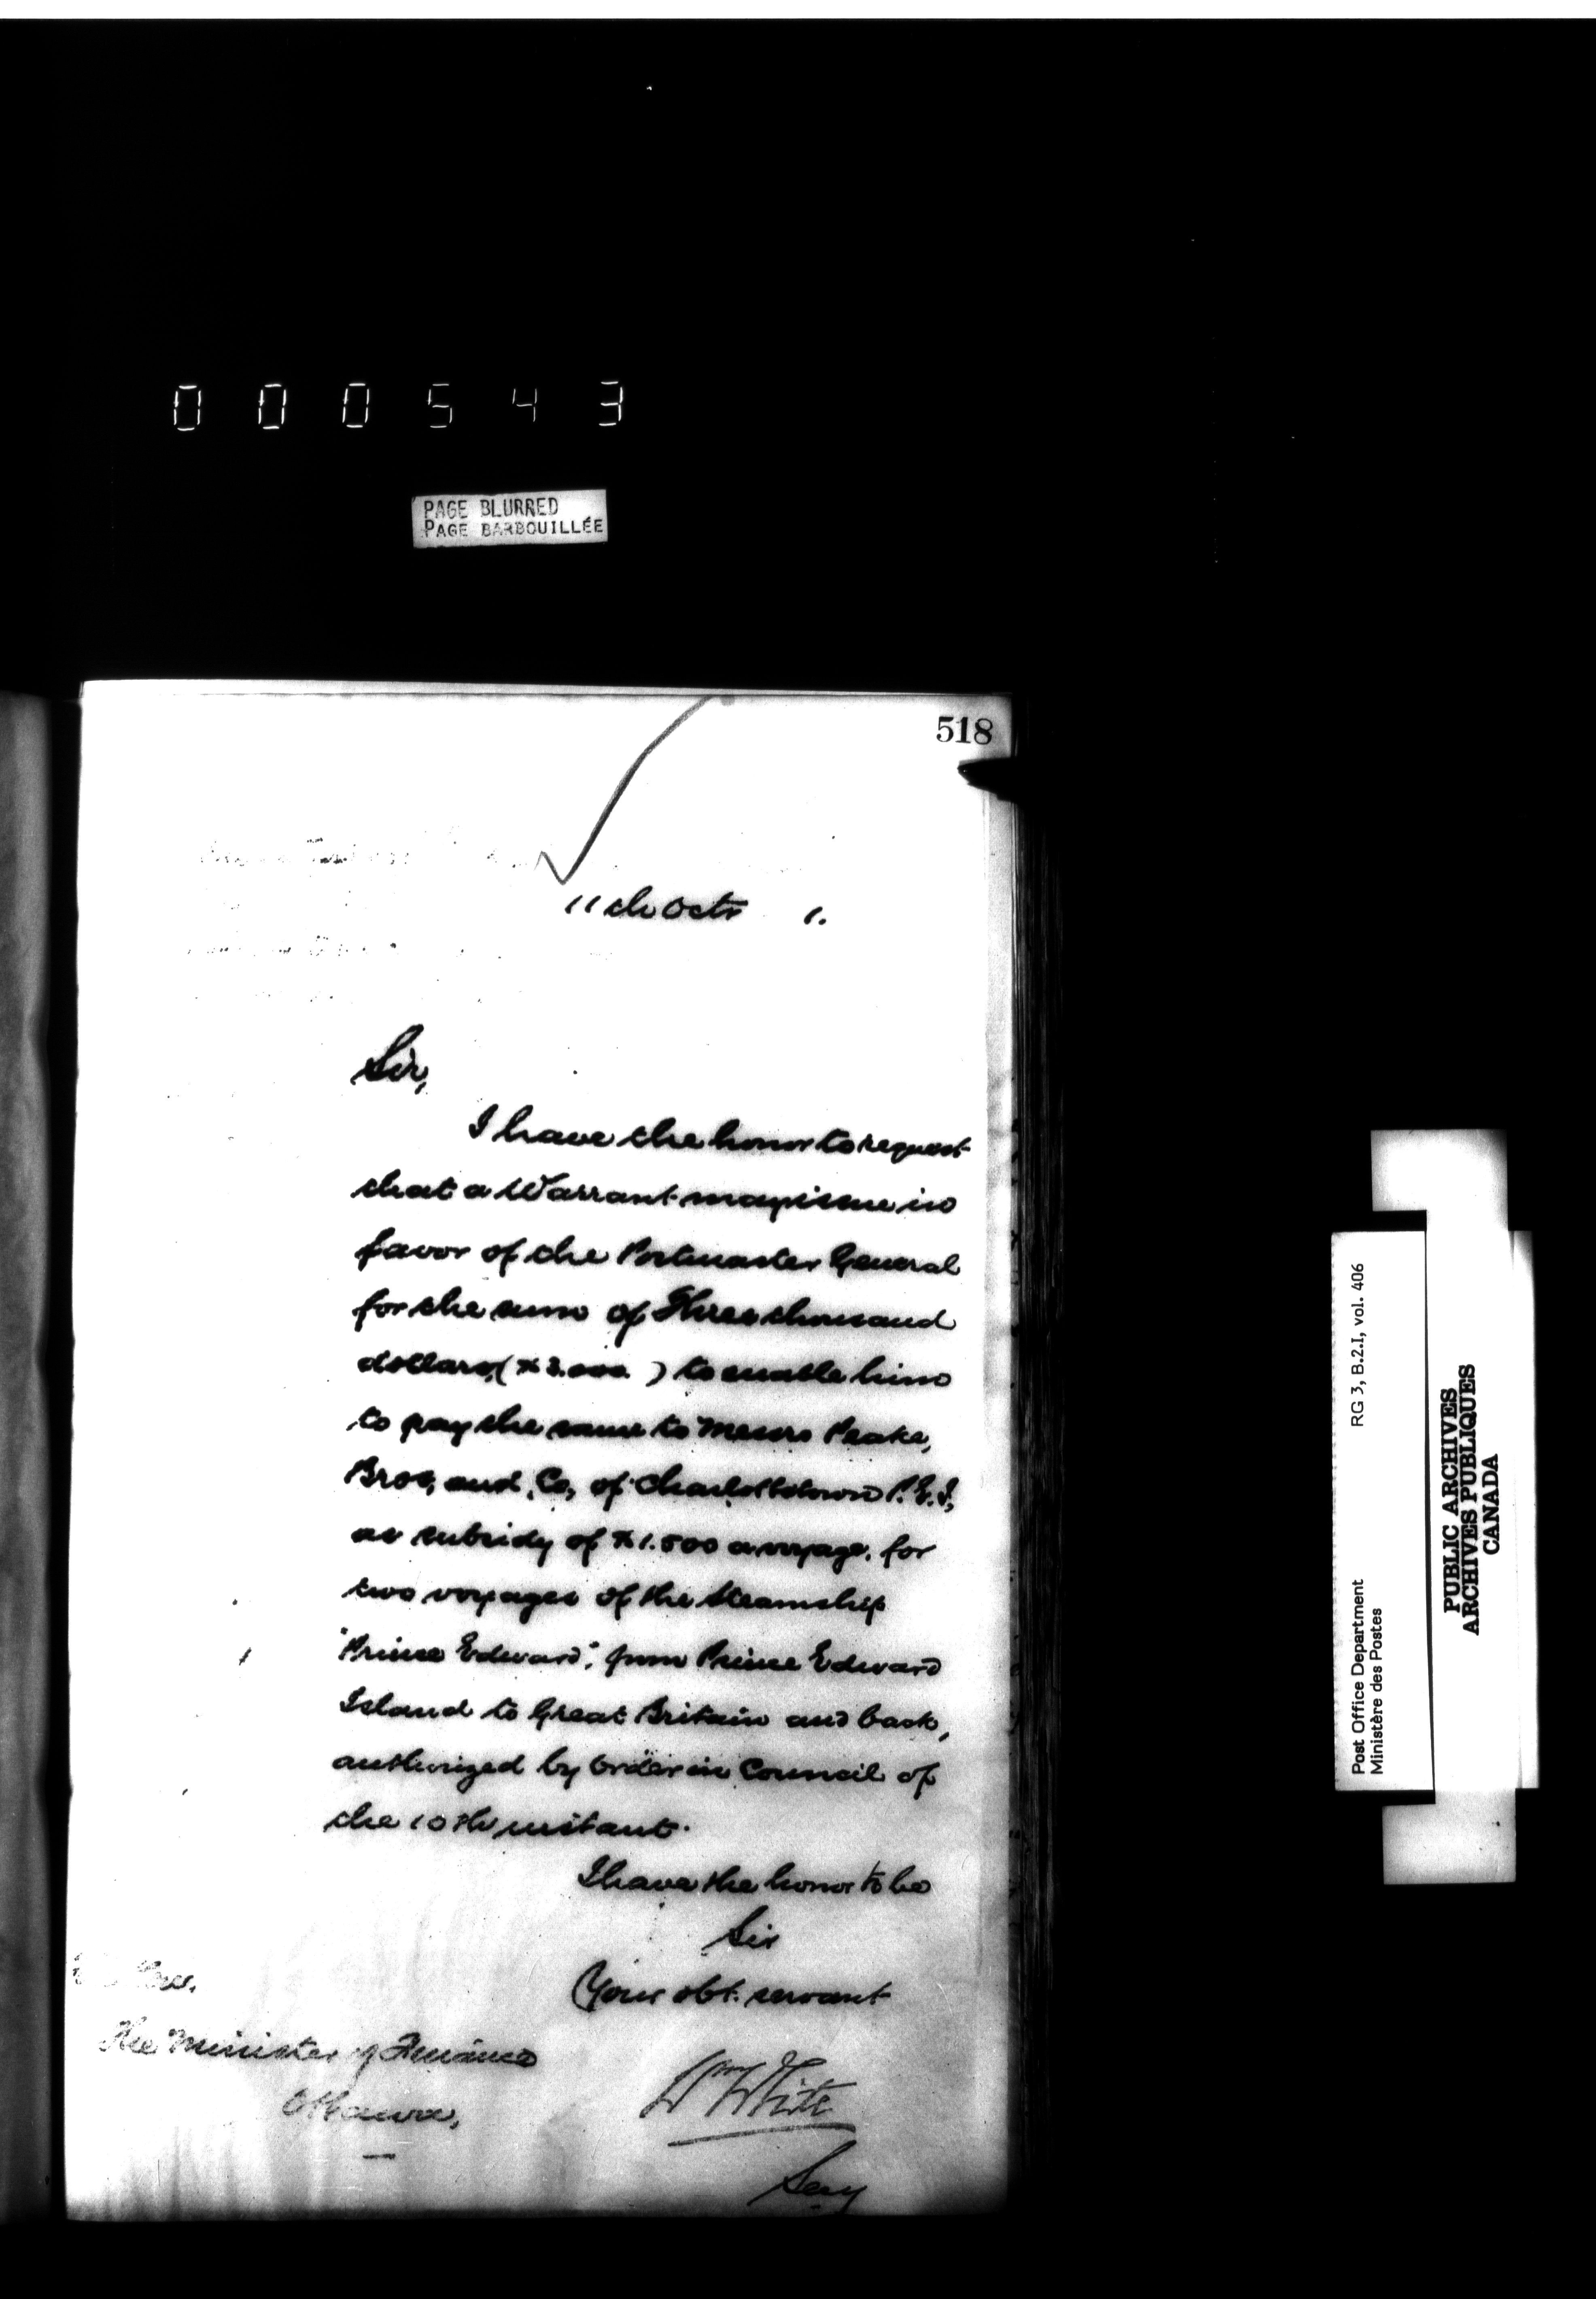 000543
PAGE BLURRED
PAGE BARBOUILLÉE
518
11th Octr 1.
Sir,
I have the honor to request
that a Warrant may issue in
favor of the Postmaster General
for the sum of Three thousand
dollars, ($3.000. ) to enable him
to pay the same to Messrs Peake,
Bros, and Co, of Charlottetown P.E.I,
as subsidy of $1.500 a voyage, for
two voyages of the Steamship
"Prince Edward", from Prince Edward
Island to Great Britain and back,
authorized by Order in Council of
the 10th instant.
I have the honor to be
Sir
Your obt. servant
Wm White
Secy
The Minister of Finance
Ottawa,
Post Office Department
Ministère des Postes
RG 3, B.2.I, vol. 406
PUBLIC ARCHIVES
ARCHIVES PUBLIQUES
CANADA